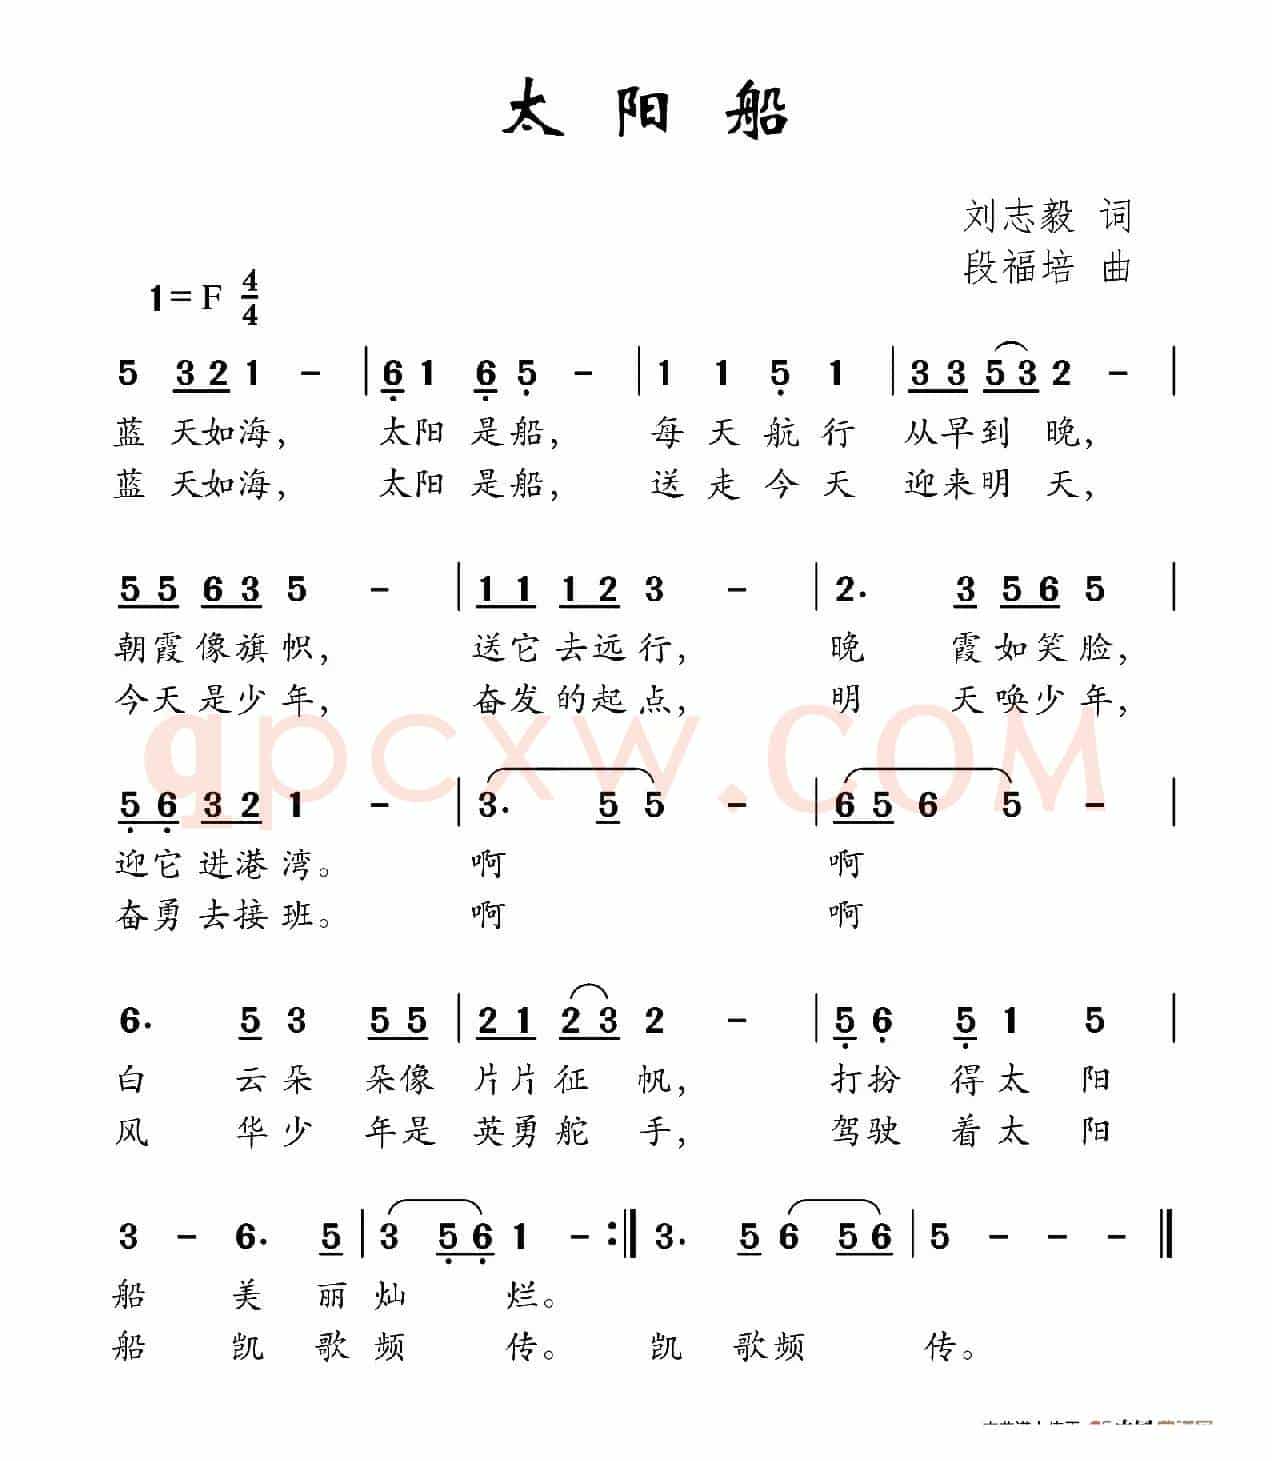 太阳船
刘志毅 词
段福培 曲
1=F 4/4
5 3 2 1 - | 6 1 6 5 - | 1 1 5 1 | 3 3 5 3 2 - |
蓝 天如海, 太阳 是船, 每 天 航 行 从早到 晚,
蓝 天如海, 太阳 是船, 送 走 今 天 迎来明 天,
5 5 6 3 5 - | 1 1 1 2 3 - | 2. 3 5 6 5 |
朝霞像旗帜, 送它去远行, 晚 霞如笑脸,
今天是少年, 奋发的起点, 明 天唤少年,
qpcxw.COM
5 6 3 2 1 - | 3. 5 5 - | 6 5 6 5 - |
迎它进港湾。 啊 啊
奋勇去接班。 啊 啊
6. 5 3 5 5 | 2 1 2 3 2 - | 5 6 5 1 5 |
白 云朵 朵像 片片征 帆, 打扮 得太 阳
风 华少 年是 英勇舵 手, 驾驶 着太 阳
3 - 6. 5 | 3 5 6 1 - :‖ 3. 5 6 5 6 | 5 - - - ‖
船 美 丽灿 烂。
船 凯 歌 频 传。 凯 歌频 传。